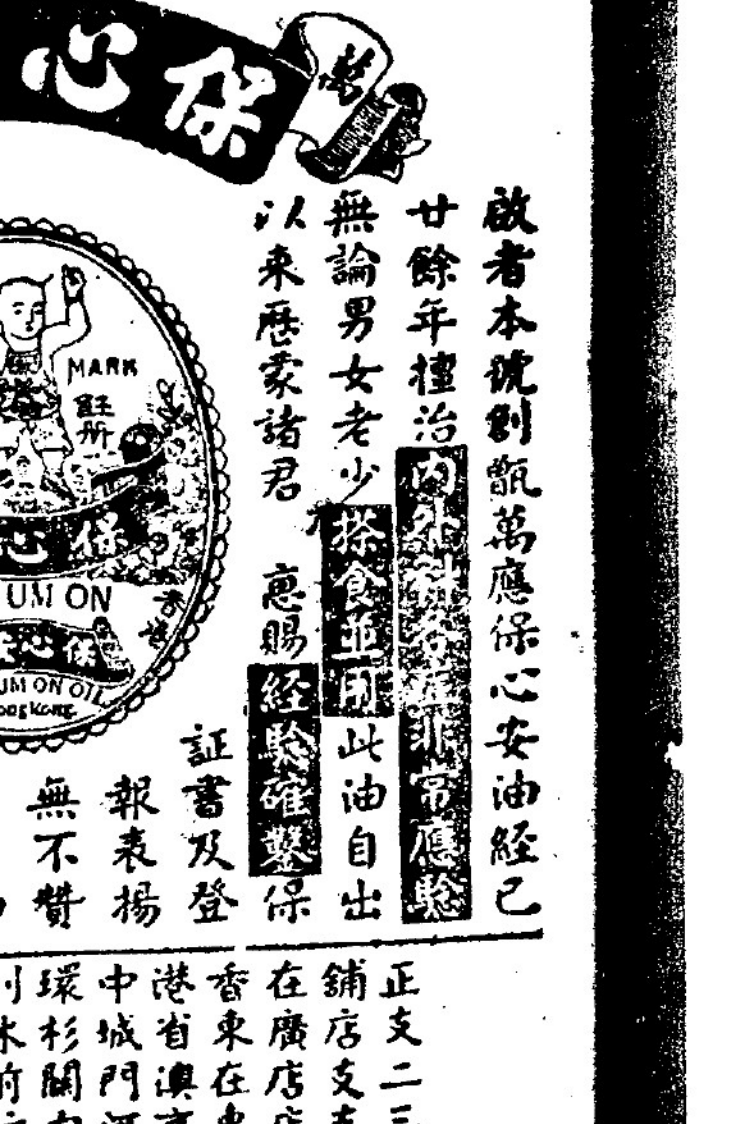 保心
萬
啟者本號創甑萬應保心安油經已
廿餘年擅治內外科各症非常應驗
無論男女老少搽食並用此油自出
以來歷蒙諸君 惠賜經驗確鑿保
証書及登
報表揚
無不贊
MARK
註册
保心
UM ON
保心
UM ON OIL
HONGKONG
正支二三
舖店支
在廣店店
香東在
港省澳
中城門
環杉關